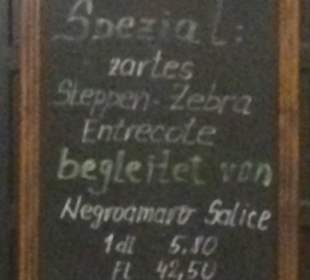 Spezial:
zartes
Steppen-Zebra
Entrecote
begleitet von
Negroamaro Salice
1 dl 5,80
Fl 42,50